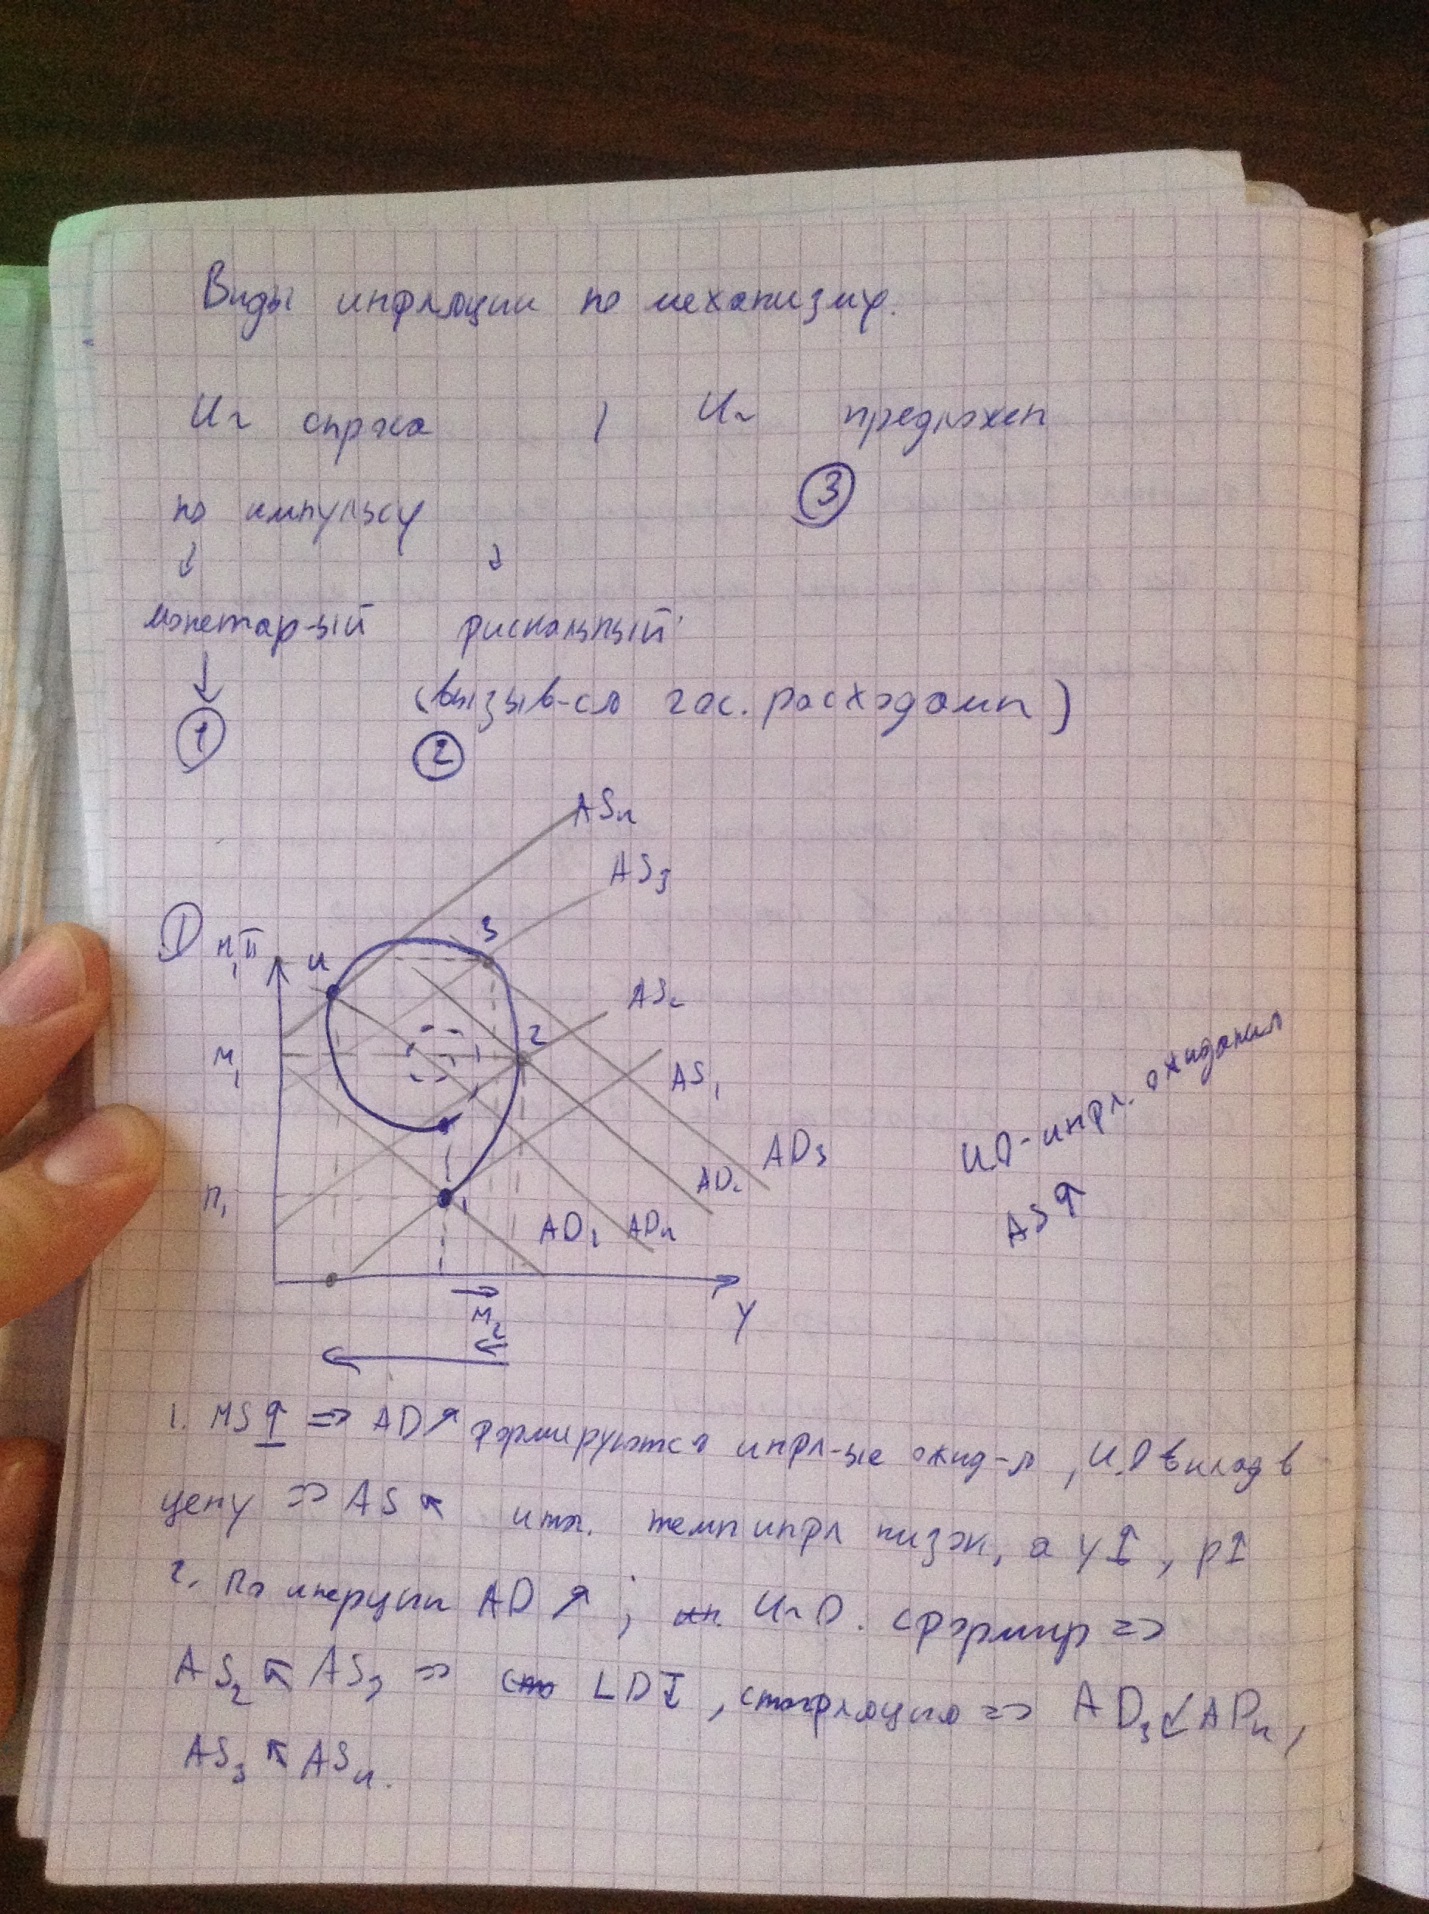 Виды инфляции по механизму.
И~ спроса , И~ предложен
по импульсу ③
↓ ↓
монетар-ый фискальный
↓ (вызыв-ся гос. расходами)
① ②
AS₄
AS₃
① π
4 3
AS₂
M₁ 2
AS₁
AD₃
AD₂
П₁ 1
AD₁ AD₄
M₂ Y
И.О - инфл. ожидания
AS↑
1. MS↑ ⇒ AD↗ формируются инфл-ые ожид-я, И.О вклад в
цену ⇒ AS↖ темп инфл низок, а y↑, p↑
2. По инерции AD↗; И~О. сформир ⇒
AS₂ ↖ AS₃ ⇒ LD↓, стагфляция ⇒ AD₃ ↙ AD₄,
AS₃ ↖ AS₄.